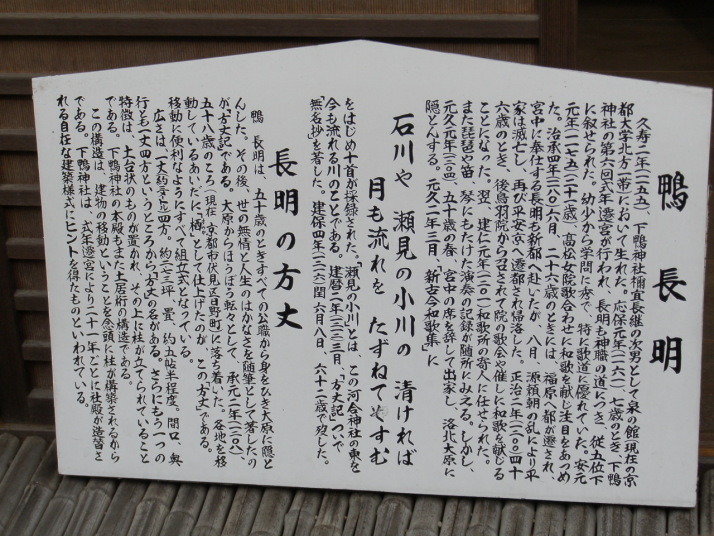 鴨長明
久寿二年(一一五五)、下鴨神社禰宜長継の次男として泉の館現在の京
都大学北方一帯において生れた。応保元年(一一六一)七歳のとき、下鴨
神社の第六回式年遷宮が行われ、長明も神職の道につき、従五位下
に叙せられた。幼少から学問に秀で、特に歌道に優れていた。安元
元年(一一七五)二十一歳、高松女院歌合わせに和歌を献じ注目をあつめ
た。治承四年(一一八〇)六月、二十六歳のときには、福原へ都が遷され、
宮中に奉仕する長明も新都へ赴したが、八月、源頼朝の乱により平
家は滅亡し、再び平安京へ遷都され帰洛した。正治二年(一二〇〇)四十
六歳のとき、後鳥羽院から召されて院の歌会や催しに和歌を献じる
ことになった。翌、建仁元年(一二〇一)和歌所の寄人に任せられた。
また琵琶や笛、琴にもたけた演奏の記録が随所にみえる。しかし、
元久元年(一二〇四)、五十歳の春、宮中の席を辞して出家し、洛北大原に
隠とんする。元久二年三月、「新古今和歌集」に、
石川や 瀬見の小川の 清ければ
月も流れを たずねてやすむ
をはじめ十首が採録された。「瀬見の小川」とは、この河合神社の東を
今も流れる川のことである。建暦二年(一二一二)三月、「方丈記」ついで
「無名」抄を著した。建保四年(一二一六)閏六月八日、六十二歳で歿した。
長明の方丈
鴨長明は、五十歳のときすべての公職から身をひき大原に隠と
んした。その後、世の無情と人生のはかなさを随筆として著したの
が、「方丈記」である。大原からほうぼう転々として、承元二年(一二〇八)、
五十八歳のころ(現在 京都市伏見区日野町)に落ち着いた。各地を移
動しているあいだに、「栖」として仕上げたのが、この「方丈」である。
移動に便利なようにすべて組立式となっている。
広さは、一丈(約三m)四方、約二・七三坪 畳、約五帖半程度。間口、奥
行とも一丈四方というところから「方丈」の名がある。さらにもう一つの
特徴は、土台状のものが置かれ、その上に柱が立てられていること
である。下鴨神社の本殿もまた土居桁の構造である。
この構造は、建物の移動ということを念頭に柱が構築されるから
である。下鴨神社は、式年遷宮により二十一年ごとに社殿が造替さ
れる自在な建築様式にヒントを得たものといわれている。